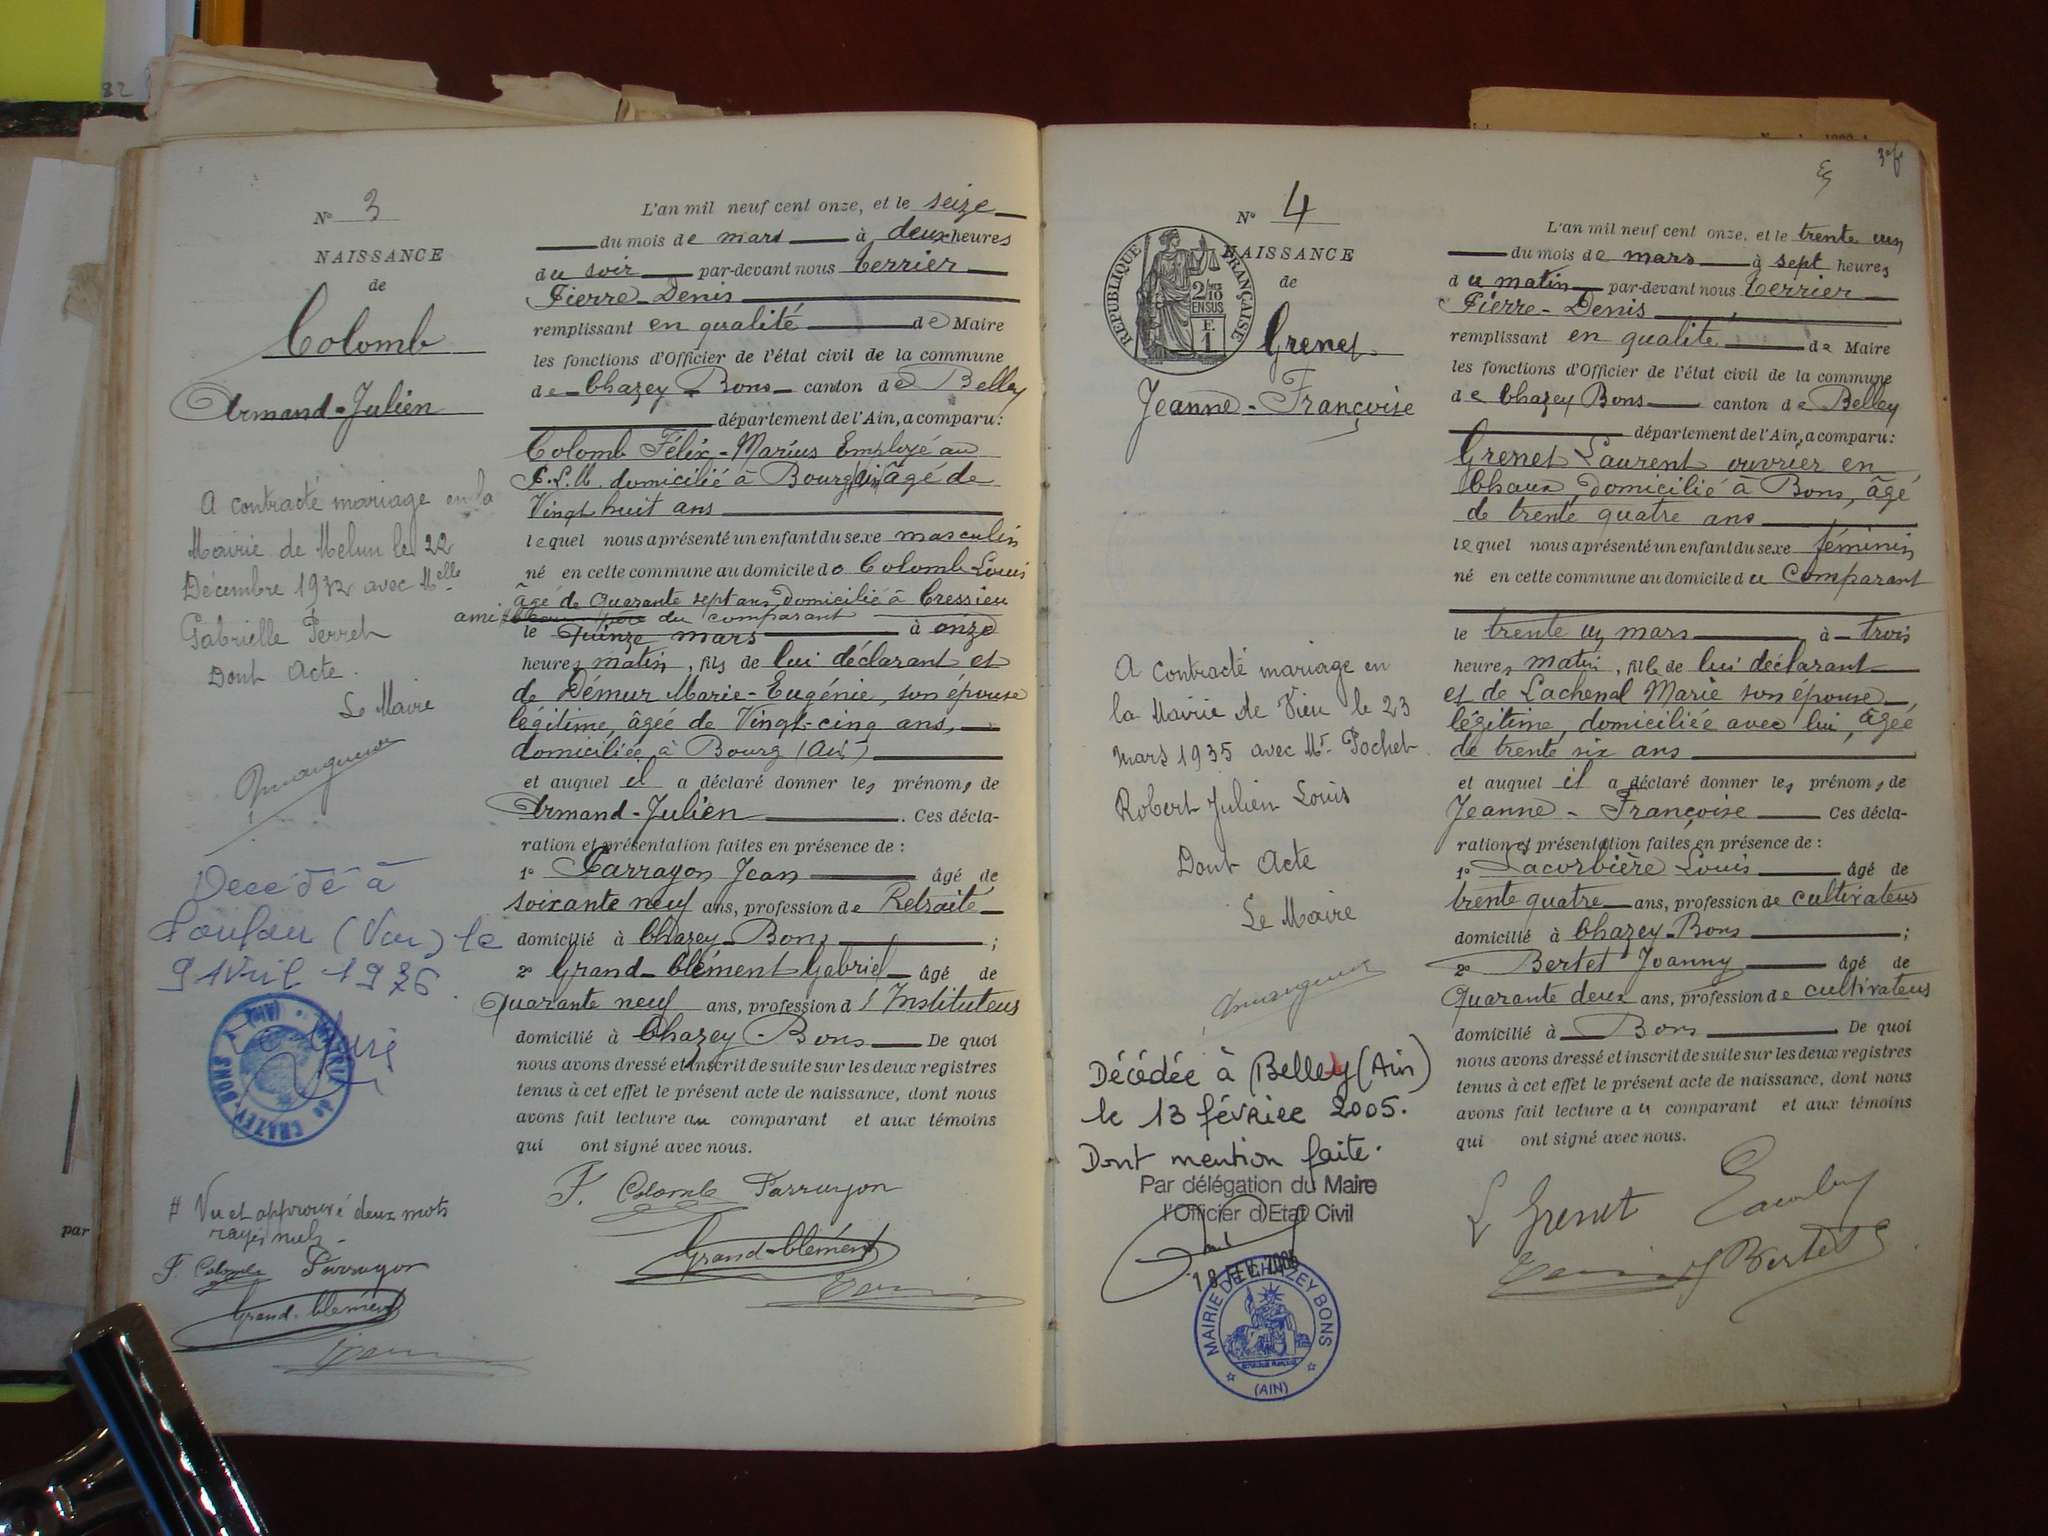 82
par
N° 3
NAISSANCE
de
Colomb
Armand-Julien
A contracté mariage en la
Mairie de Melun le 22
Décembre 1932 avec Melle
Gabrielle Perret
Dont Acte.
Le Maire
Décédé à
(Var) le
9 Avril 1976.
# Vu et approuvé deux mots
rayés nuls.
F. Colomb Parragon
Grand-Clément
L'an mil neuf cent onze, et le seize
du mois de mars à deux heures
du soir par-devant nous Terrier
Pierre-Denis
remplissant en qualité de Maire
les fonctions d'Officier de l'état civil de la commune
de Chazey-Bons canton de Belley
département de l'Ain, a comparu :
Colomb Félix-Marius Employé au
P.L.M. domicilié à Bourg (Ain) âgé de
Vingt huit ans
lequel nous a présenté un enfant du sexe masculin
né en cette commune au domicile de Colomb Louis
âgé de quarante sept ans domicilié à Cressieu
ami # père du comparant
le Quinze mars à onze
heures matin, fils de lui déclarant et
de Démur Marie-Eugénie, son épouse
légitime, âgée de Vingt-cinq ans,
domiciliée à Bourg (Ain)
et auquel il a déclaré donner les prénoms de
Armand-Julien . Ces décla-
ration et présentation faites en présence de :
1° Parragon Jean âgé de
soixante neuf ans, profession de Retraité
domicilié à Chazey-Bons ;
2° Grand-Clément Gabriel âgé de
Quarante neuf ans, profession d'Instituteur
domicilié à Chazey-Bons De quoi
nous avons dressé et inscrit de suite sur les deux registres
tenus à cet effet le présent acte de naissance, dont nous
avons fait lecture au comparant et aux témoins
qui ont signé avec nous.
F. Colomb Parragon
Grand-Clément
3e f
N° 4
NAISSANCE
de
RÉPUBLIQUE FRANÇAISE
2/10
EN SUS
F.
1
Grenet
Jeanne-Françoise
A contracté mariage en
la Mairie de Vieu le 23
Mars 1935 avec Mr Pochet
Robert Julien Louis
Dont Acte
Le Maire
Décédée à Belley (Ain)
le 13 février 2005.
Dont mention faite.
Par délégation du Maire
l'Officier d'Etat Civil
MAIRIE DE CHAZEY BONS
(AIN)
L'an mil neuf cent onze, et le trente un
du mois de mars à sept heures
du matin par-devant nous Terrier
Pierre-Denis
remplissant en qualité de Maire
les fonctions d'Officier de l'état civil de la commune
de Chazey Bons canton de Belley
département de l'Ain, a comparu :
Grenet Laurent ouvrier en
Chaux, domicilié à Bons, âgé
de trente quatre ans
lequel nous a présenté un enfant du sexe féminin
né en cette commune au domicile du comparant
le trente un mars à trois
heures matin, fille de lui déclarant
et de Lachenal Marie son épouse
légitime, domiciliée avec lui, âgée
de trente six ans
et auquel il a déclaré donner les prénoms de
Jeanne-Françoise Ces décla-
ration et présentation faites en présence de :
1° Lacorbière Louis âgé de
trente quatre ans, profession de cultivateur
domicilié à Chazey-Bons ;
2° Bertet Joanny âgé de
Quarante deux ans, profession de cultivateur
domicilié à Bons De quoi
nous avons dressé et inscrit de suite sur les deux registres
tenus à cet effet le présent acte de naissance, dont nous
avons fait lecture au comparant et aux témoins
qui ont signé avec nous.
L Grenet
Bertet